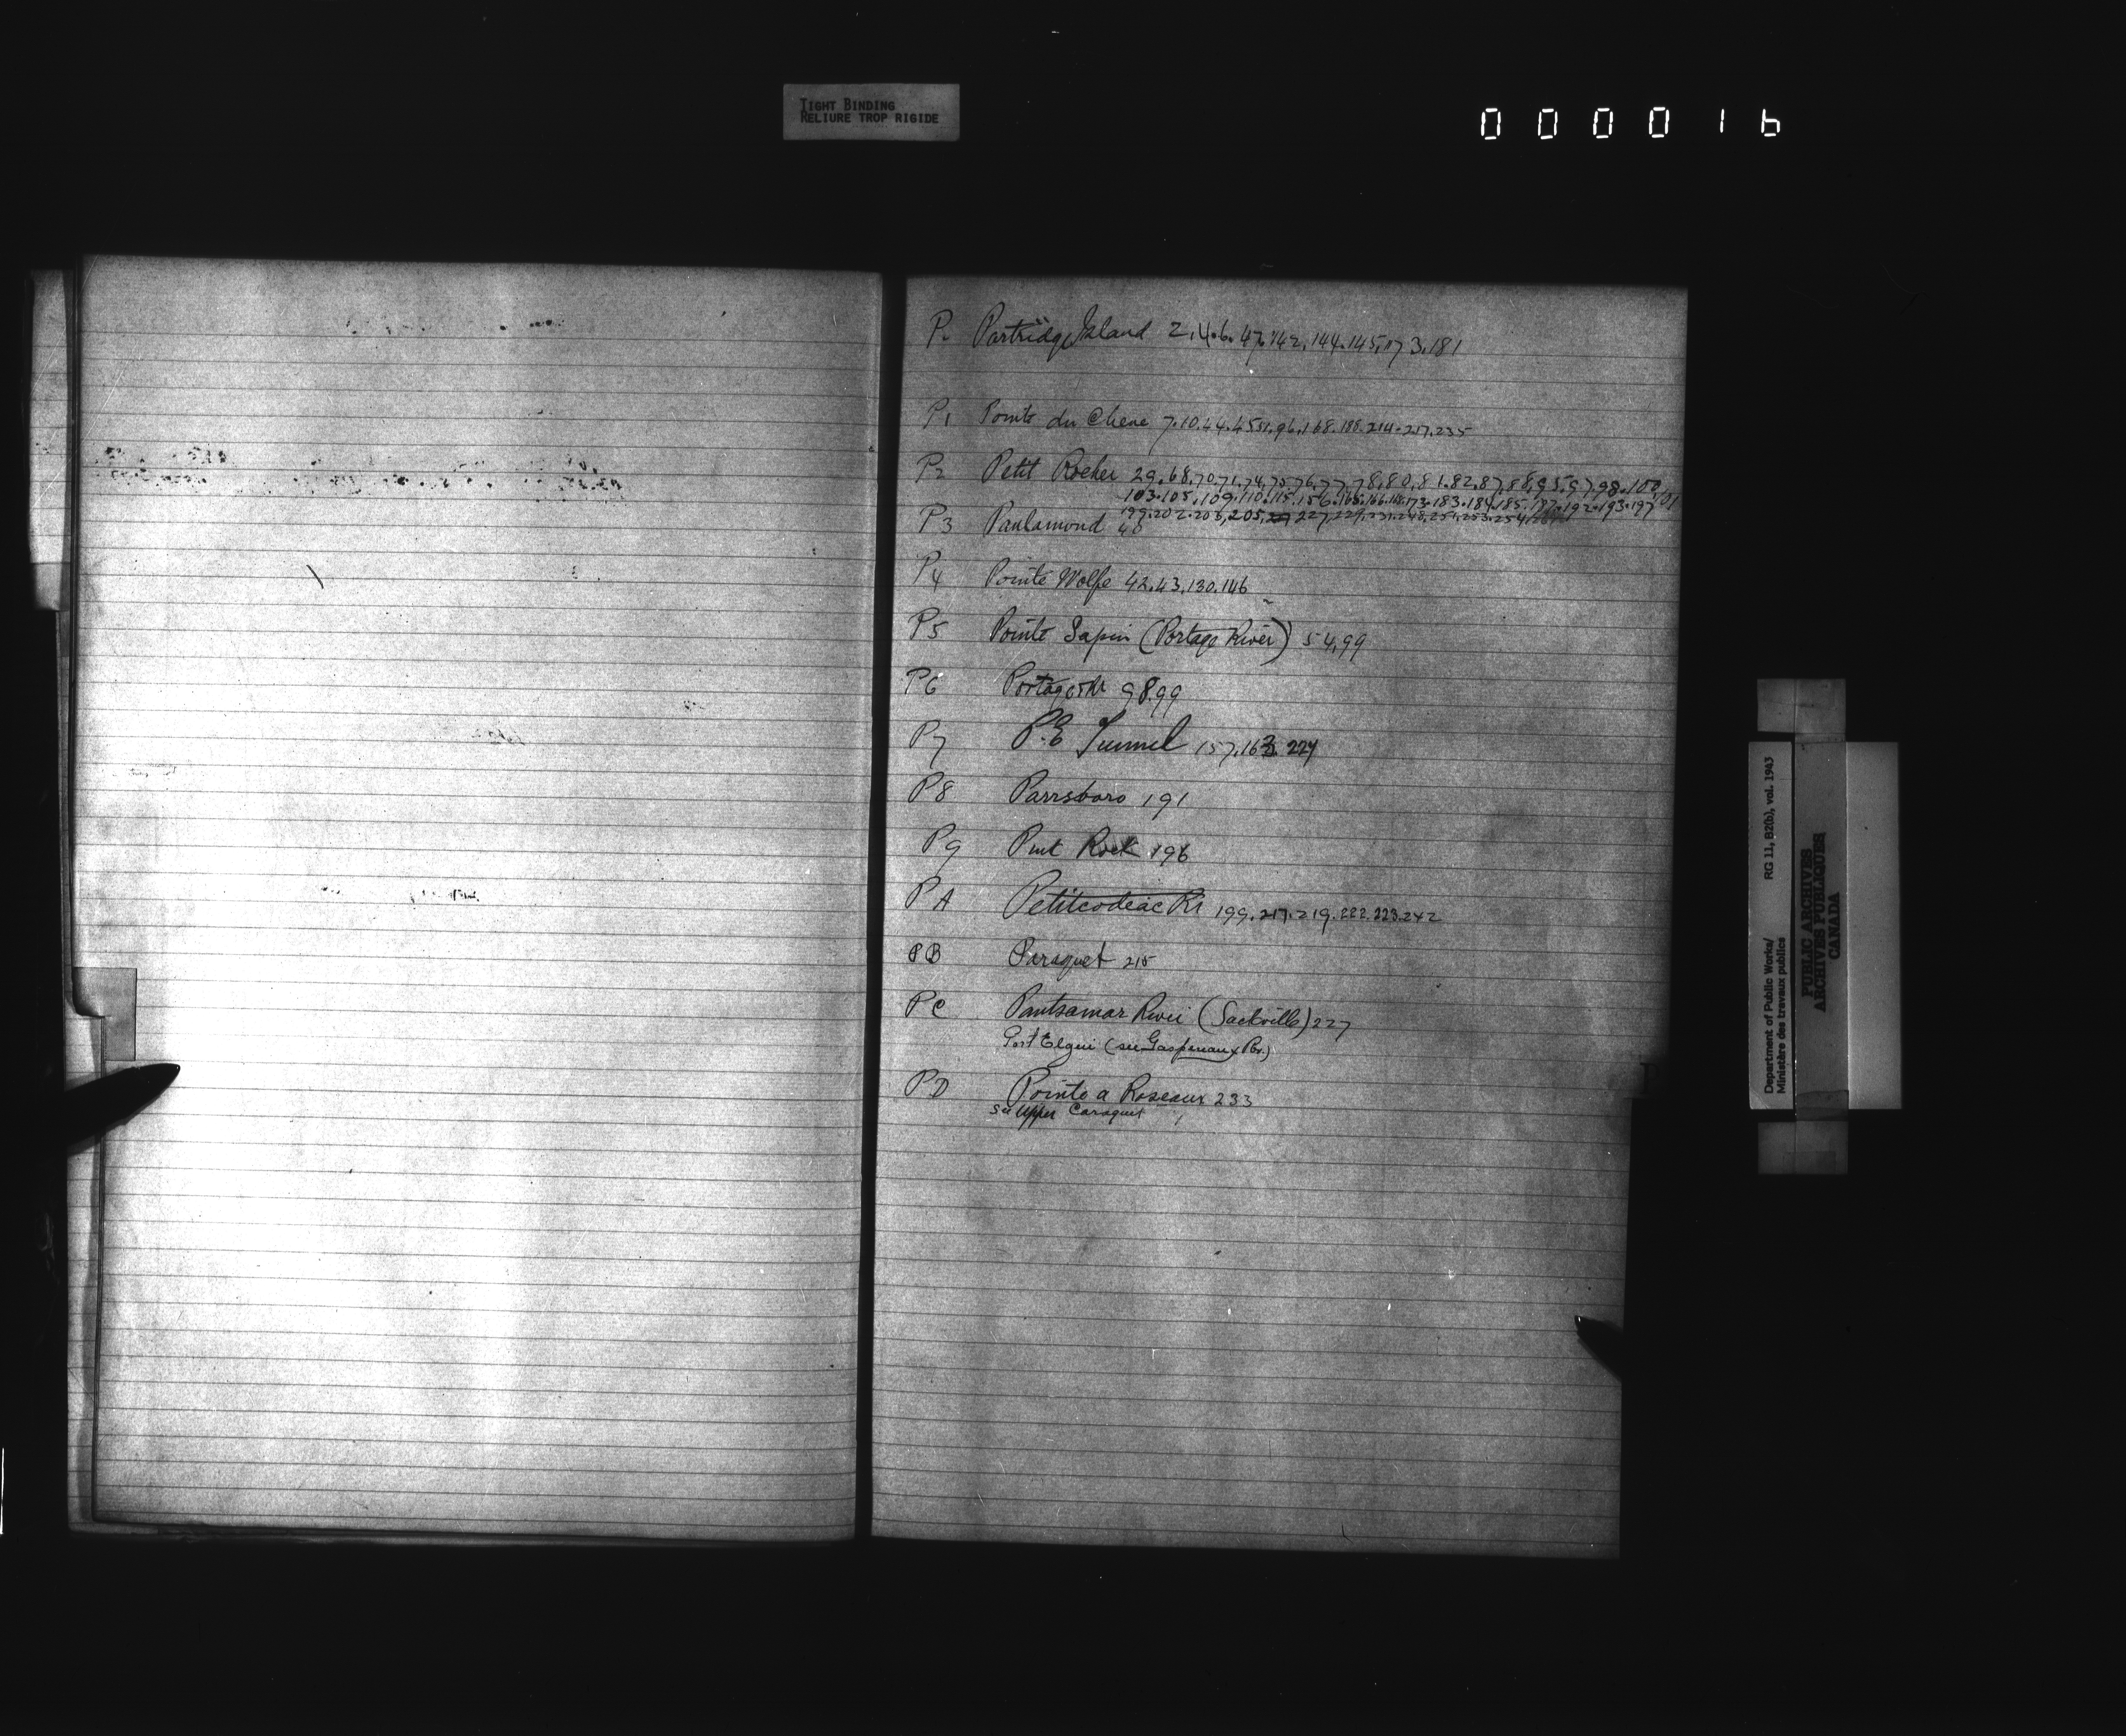 TIGHT BINDING
RELIURE TROP RIGIDE
0 0 0 0 1 6
P. Partridge Island 2.4.6.47.142.144.145.173.181
P1 Pointe du Chene 7.10.44.45.51.96.168.188.214.217.235
P2 Petit Rocher 29.68.70.71.74.75.76.77.78.80.81.82.87.88.95.97.98.100.101
103.105.109.110.115.156.165.166.168.173.183.184.185.187.192.193.197
199.202.203.205. 227.229.231.248.251.253.254
P3 Paulamond 48
P4 Pointe Wolfe 42.43.130.146
P5 Pointe Sapin (Portage River) 54.99
P6 Portage 98.99
P7 P.E Tunnel 157.163. 224
P8 Parrsboro 191
P9 Rock 196
PA Petitcodeac Rr 199.217.219.222.223.242
PB Paraquet 215
PC River (Sackville) 227
Port Elgin (see Gaspereaux Rr.)
PD Pointe a Roseaux 233
see Upper Caraquet
Department of Public Works/ RG 11, B2(b), vol. 1943
Ministère des travaux publics
PUBLIC ARCHIVES
ARCHIVES PUBLIQUES
CANADA